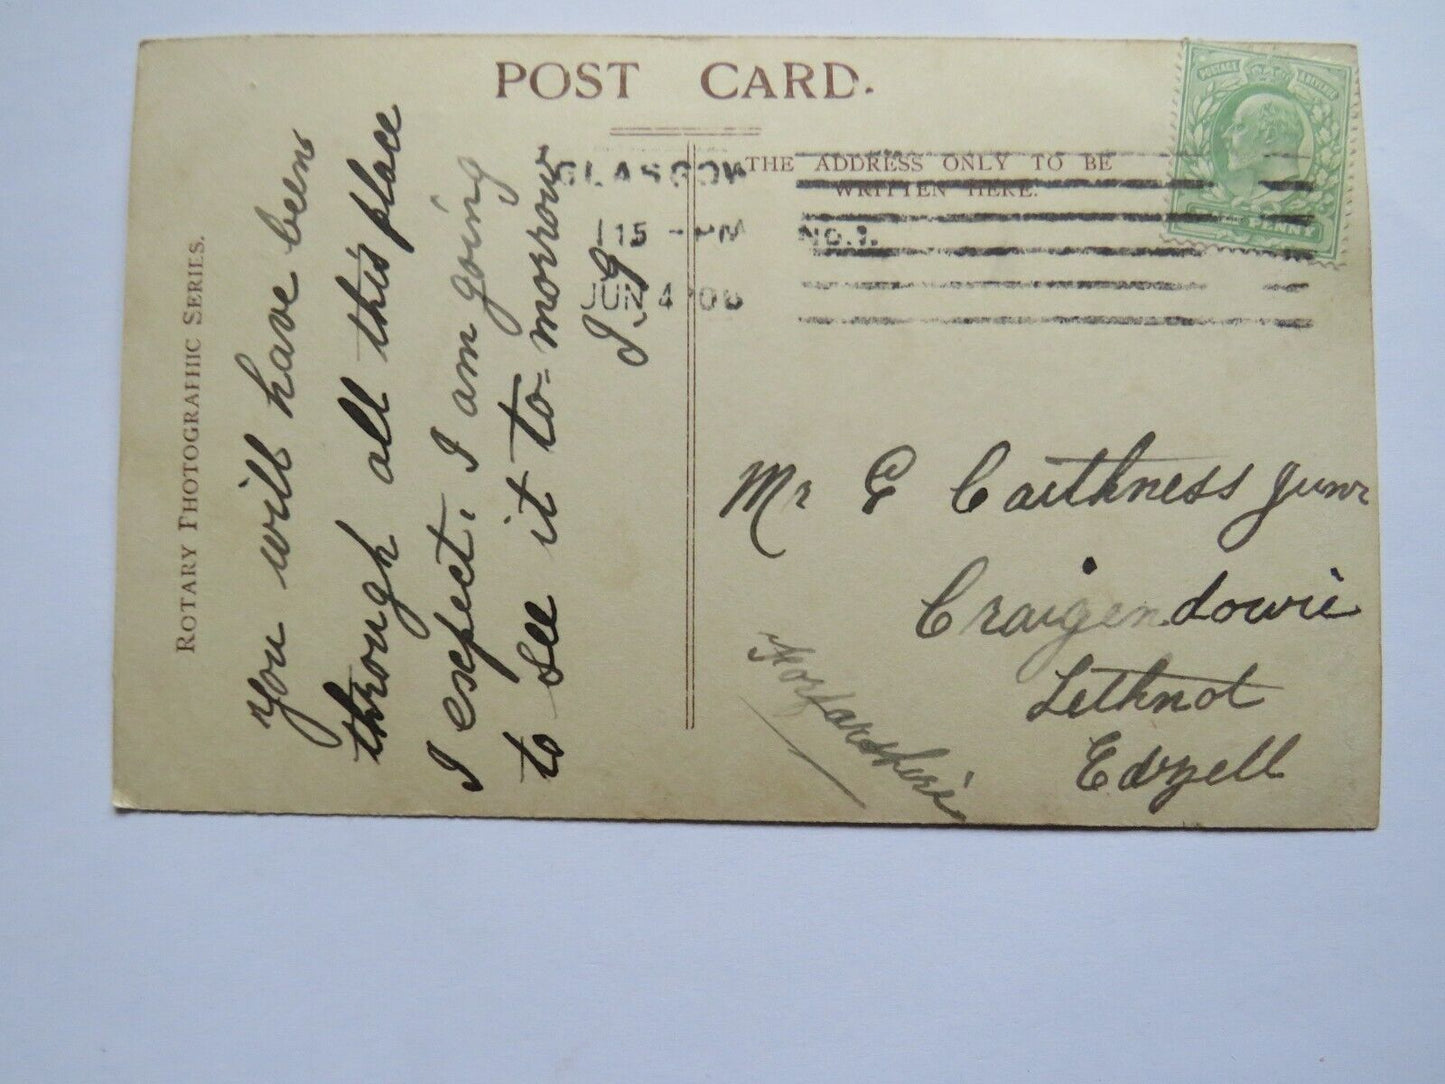 POST CARD.
THE ADDRESS ONLY TO BE
WRITTEN HERE.
ROTARY PHOTOGRAPHIC SERIES.
GLASGOW
JUN 4 06
NO.1.
POSTAGE
PENNY
You will have been
through all this place
I expect. I am going
to see it to=morrow
Mr G Caithness Junr
Craigendowie
Lethnot
Edzell
Forfarshire